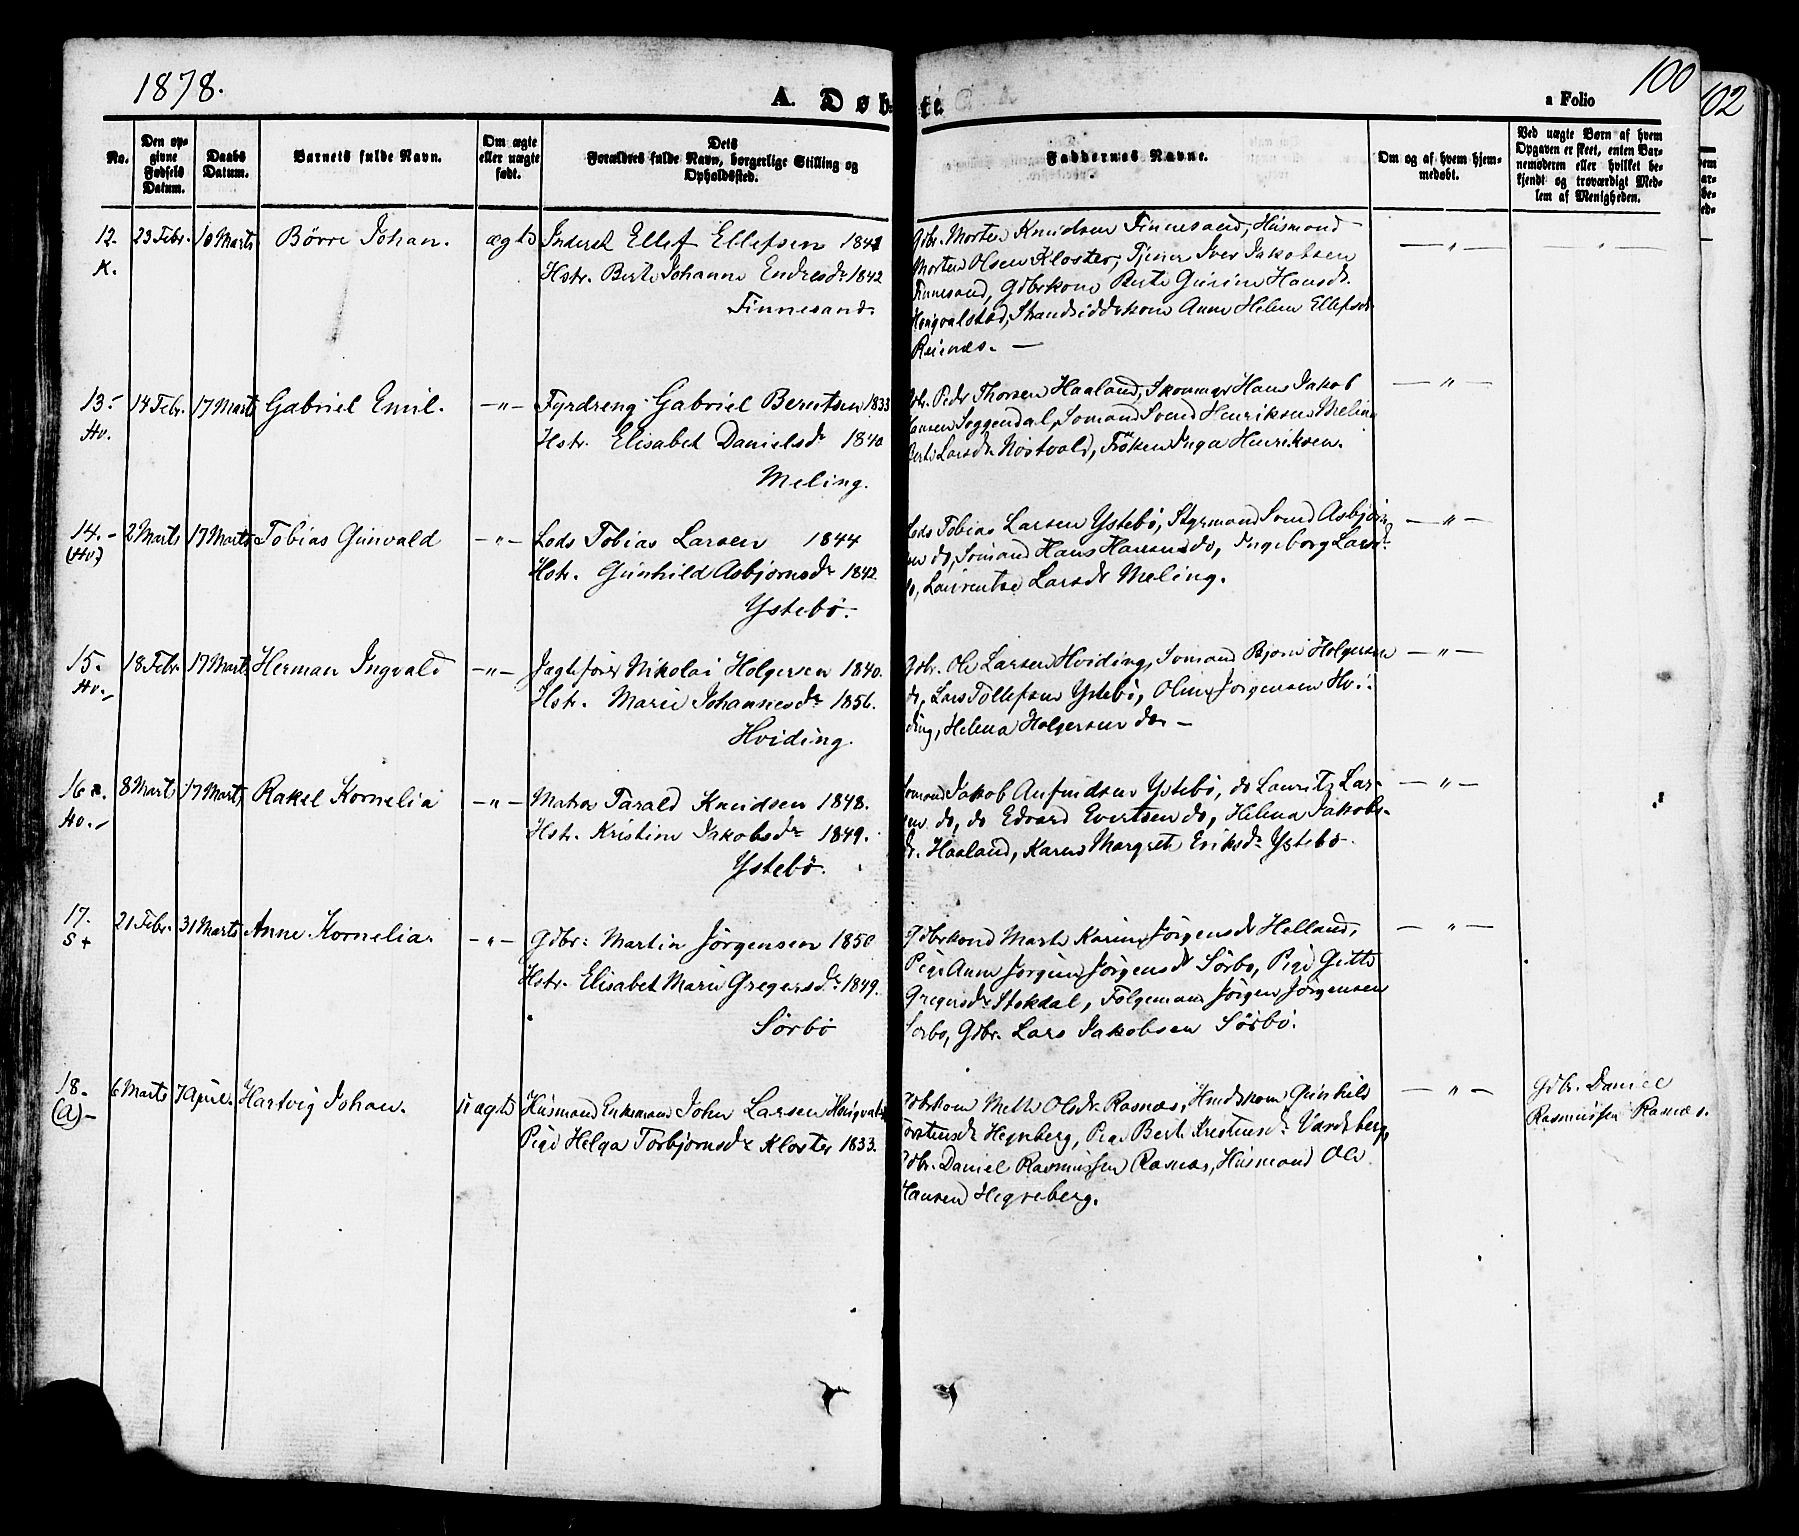 1878.
A. Døbte.
a Folio
100
102
No.
Den op-
givne
Fødsels
Datum.
Daabs
Datum.
Barnets fulde Navn.
Om ægte
eller uægte
født.
Dets
Forældres fulde Navn, borgerlige Stilling og
Opholdssted.
Faddernes Navne.
Om og af hvem hjem-
medøbt.
Ved uægte Børn af hvem
Opgaven er skeet, enten Bar-
nemoderen eller hvilket be-
kjendt og troværdigt Med-
lem af Menigheden.
12. 23 Febr. 10 Marts Børre Johan. ægte Inderst Ellef Ellefsen
K. Hstr. Berte Johanne Endresdr 1842
Finnesand.
Gbr. Morten Knudsen Finnesand, Husmand
Morten Olsen Kloster, Tjener Iver Jakobsen
Finnesand, Gdbrkone Berte Gurine Hansdr
Strandsidderkone Anne Helene Ellefsdr
Reienæs. —
13. 14 Febr. 17 Marts Gabriel Emil. —"— Fyrdreng Gabriel Berntsen 1833
Hv. Hstr. Elisabet Danielsdr 1840
Meling.
Gbr. Peder Thorsen Haaland, Skomager Hans Jakob
Hansen Soggendal, Sömand Svend Henriksen Meling
Berte Larsdr Nöstvold, Fröken Inga Henriksen.
—"—
14. 2 Marts 17 Marts Tobias Gunvald —"— Lods Tobias Larsen 1844
(Hv.) Hstr. Gunhild Asbjörnsdr 1842
Ystebö.
Lods Tobias Larsen Ystebö, Styrmand Svend Asbjörn-
sen do, Sömand Hans Hansen do, Ingeborg Larsdr
do, Laurentse Larsdr Meling.
—"—
15. 18 Febr. 17 Marts Herman Ingvald —"— Jagtefører Nikolai Holgersen 1840.
Hv. Hstr. Marie Johannesdr 1856.
Hviding.
Gdbr. Ole Larsen Hviding, Sömand Björn Holgersen
do, Lars Tollefsen Ystebö, Oline Jörgensen Hvi-
ding, Helena Holgersen do —
—"—
16. 8 Marts 17 Marts Rakel Kornelia —"— Matros Tarald Knudsen 1848.
Hv. Hstr. Kristine Jakobsdr 1849.
Ystebö.
Sömand Jakob Anfindsen Ystebö, do Lauritz Lar-
sen do, do Edvard Evertsen do, Helena Jakobs-
dr. Haaland, Karen Margrete Eriksdr Ystebö.
—"—
17. 21 Febr. 31 Marts Anne Kornelia. —"— Gdbr. Martin Jörgensen 1850
S+ Hstr. Elisabet Marie Gregersdr 1849.
Sörbö
Gdbrkone Marte Karine Jörgensdr Helland,
Pige Anne Jorgine Jörgensdr Sörbö, Pige Gitte
Gregersdr Stokdal, Folgemand Jörgen Jörgensen
Sörbö, Gdbr. Lars Jakobsen Sörbö.
—"—
18. 6 Marts 7 April. Hartvig Johan. uægte Husmand Enkemand John Larsen
(A) Pige Helga Torbjörnsdr Kloster 1833.
Gdbrkone Mette Olsdr Rasnæs, Gunhild
Torstensdr Pige Berte Kristensdr
Gdbr. Daniel Rasmussen Rasnæs, Husmand Ole
Hansen Hegreberg.
—"—
Gdbr. Daniel
Rasmussen Rasnæs.